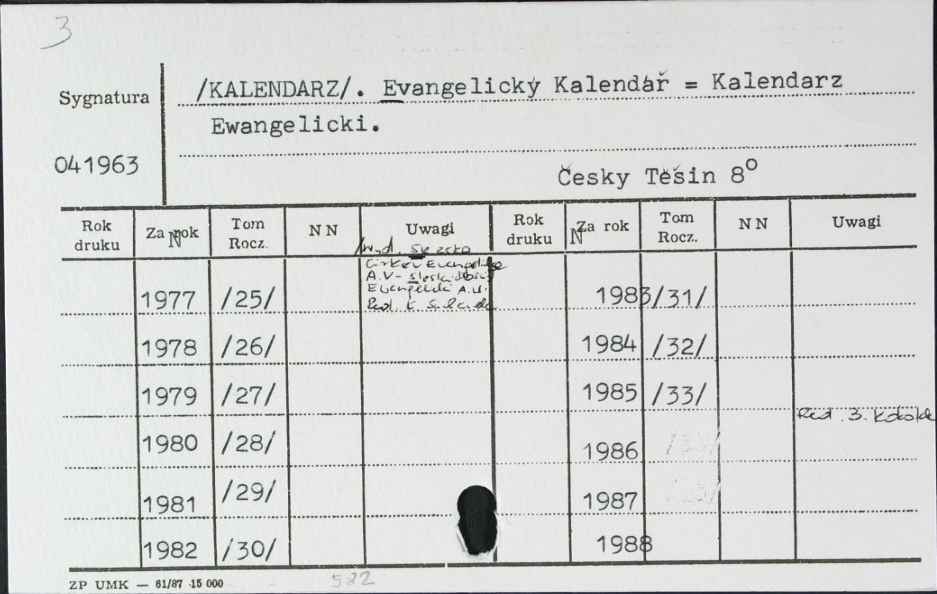 3
Sygnatura
/KALENDARZ/. Evangelický Kalendář = Kalendarz
Ewangelicki.
041963
Česky Těšin 8º
Rok druku Za rok Tom Rocz. N N Uwagi Rok druku Za rok Tom Rocz. N N Uwagi
N N
Wyd.
A.V-
A.V.
Red. K.
1977 /25/ 1983 /31/
1978 /26/ 1984 /32/
1979 /27/ 1985 /33/
Red. 3.
1980 /28/ 1986
1981 /29/ 1987
1982 /30/ 1988
ZP UMK — 61/87 15 000
522